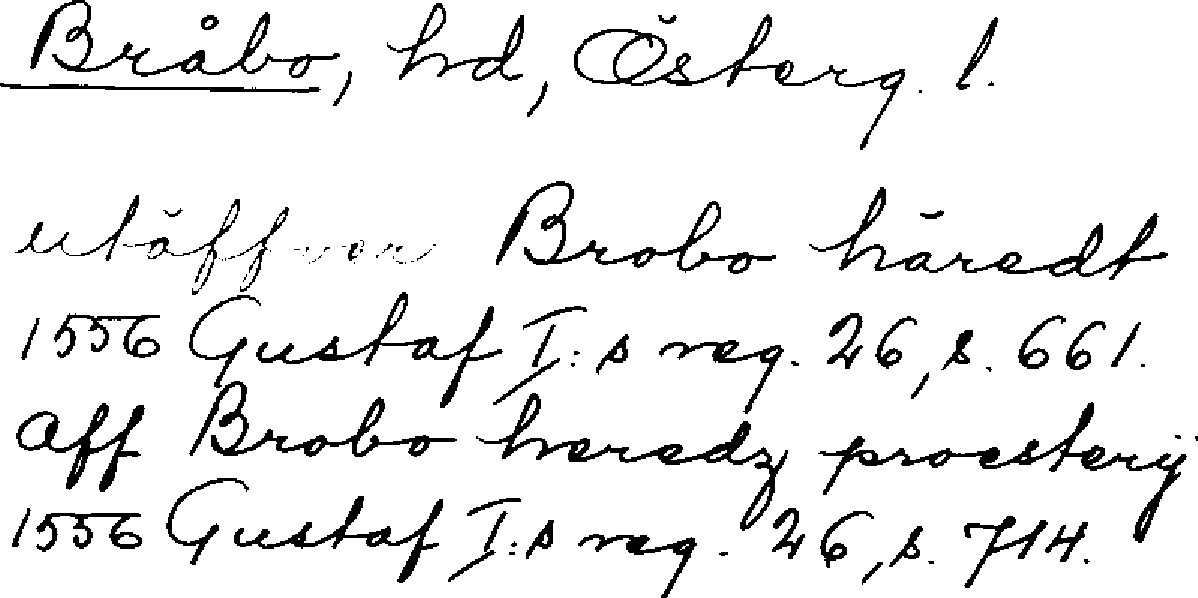 Bråbo, hd, Österg. l.
utäffver Brobo häredt
1556 Gustaf I:s reg. 26, s. 661.
aff Brobo heredz proesterij
1556 Gustaf I:s reg. 26, s. 714.